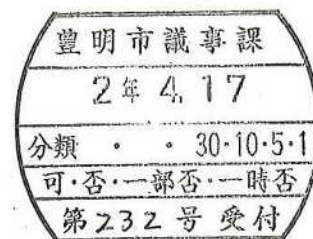 豊明市議事課
2年 4. 17
分類 ・ ・ 30・10・5・1
可・否・一部否・一時否
第232号受付